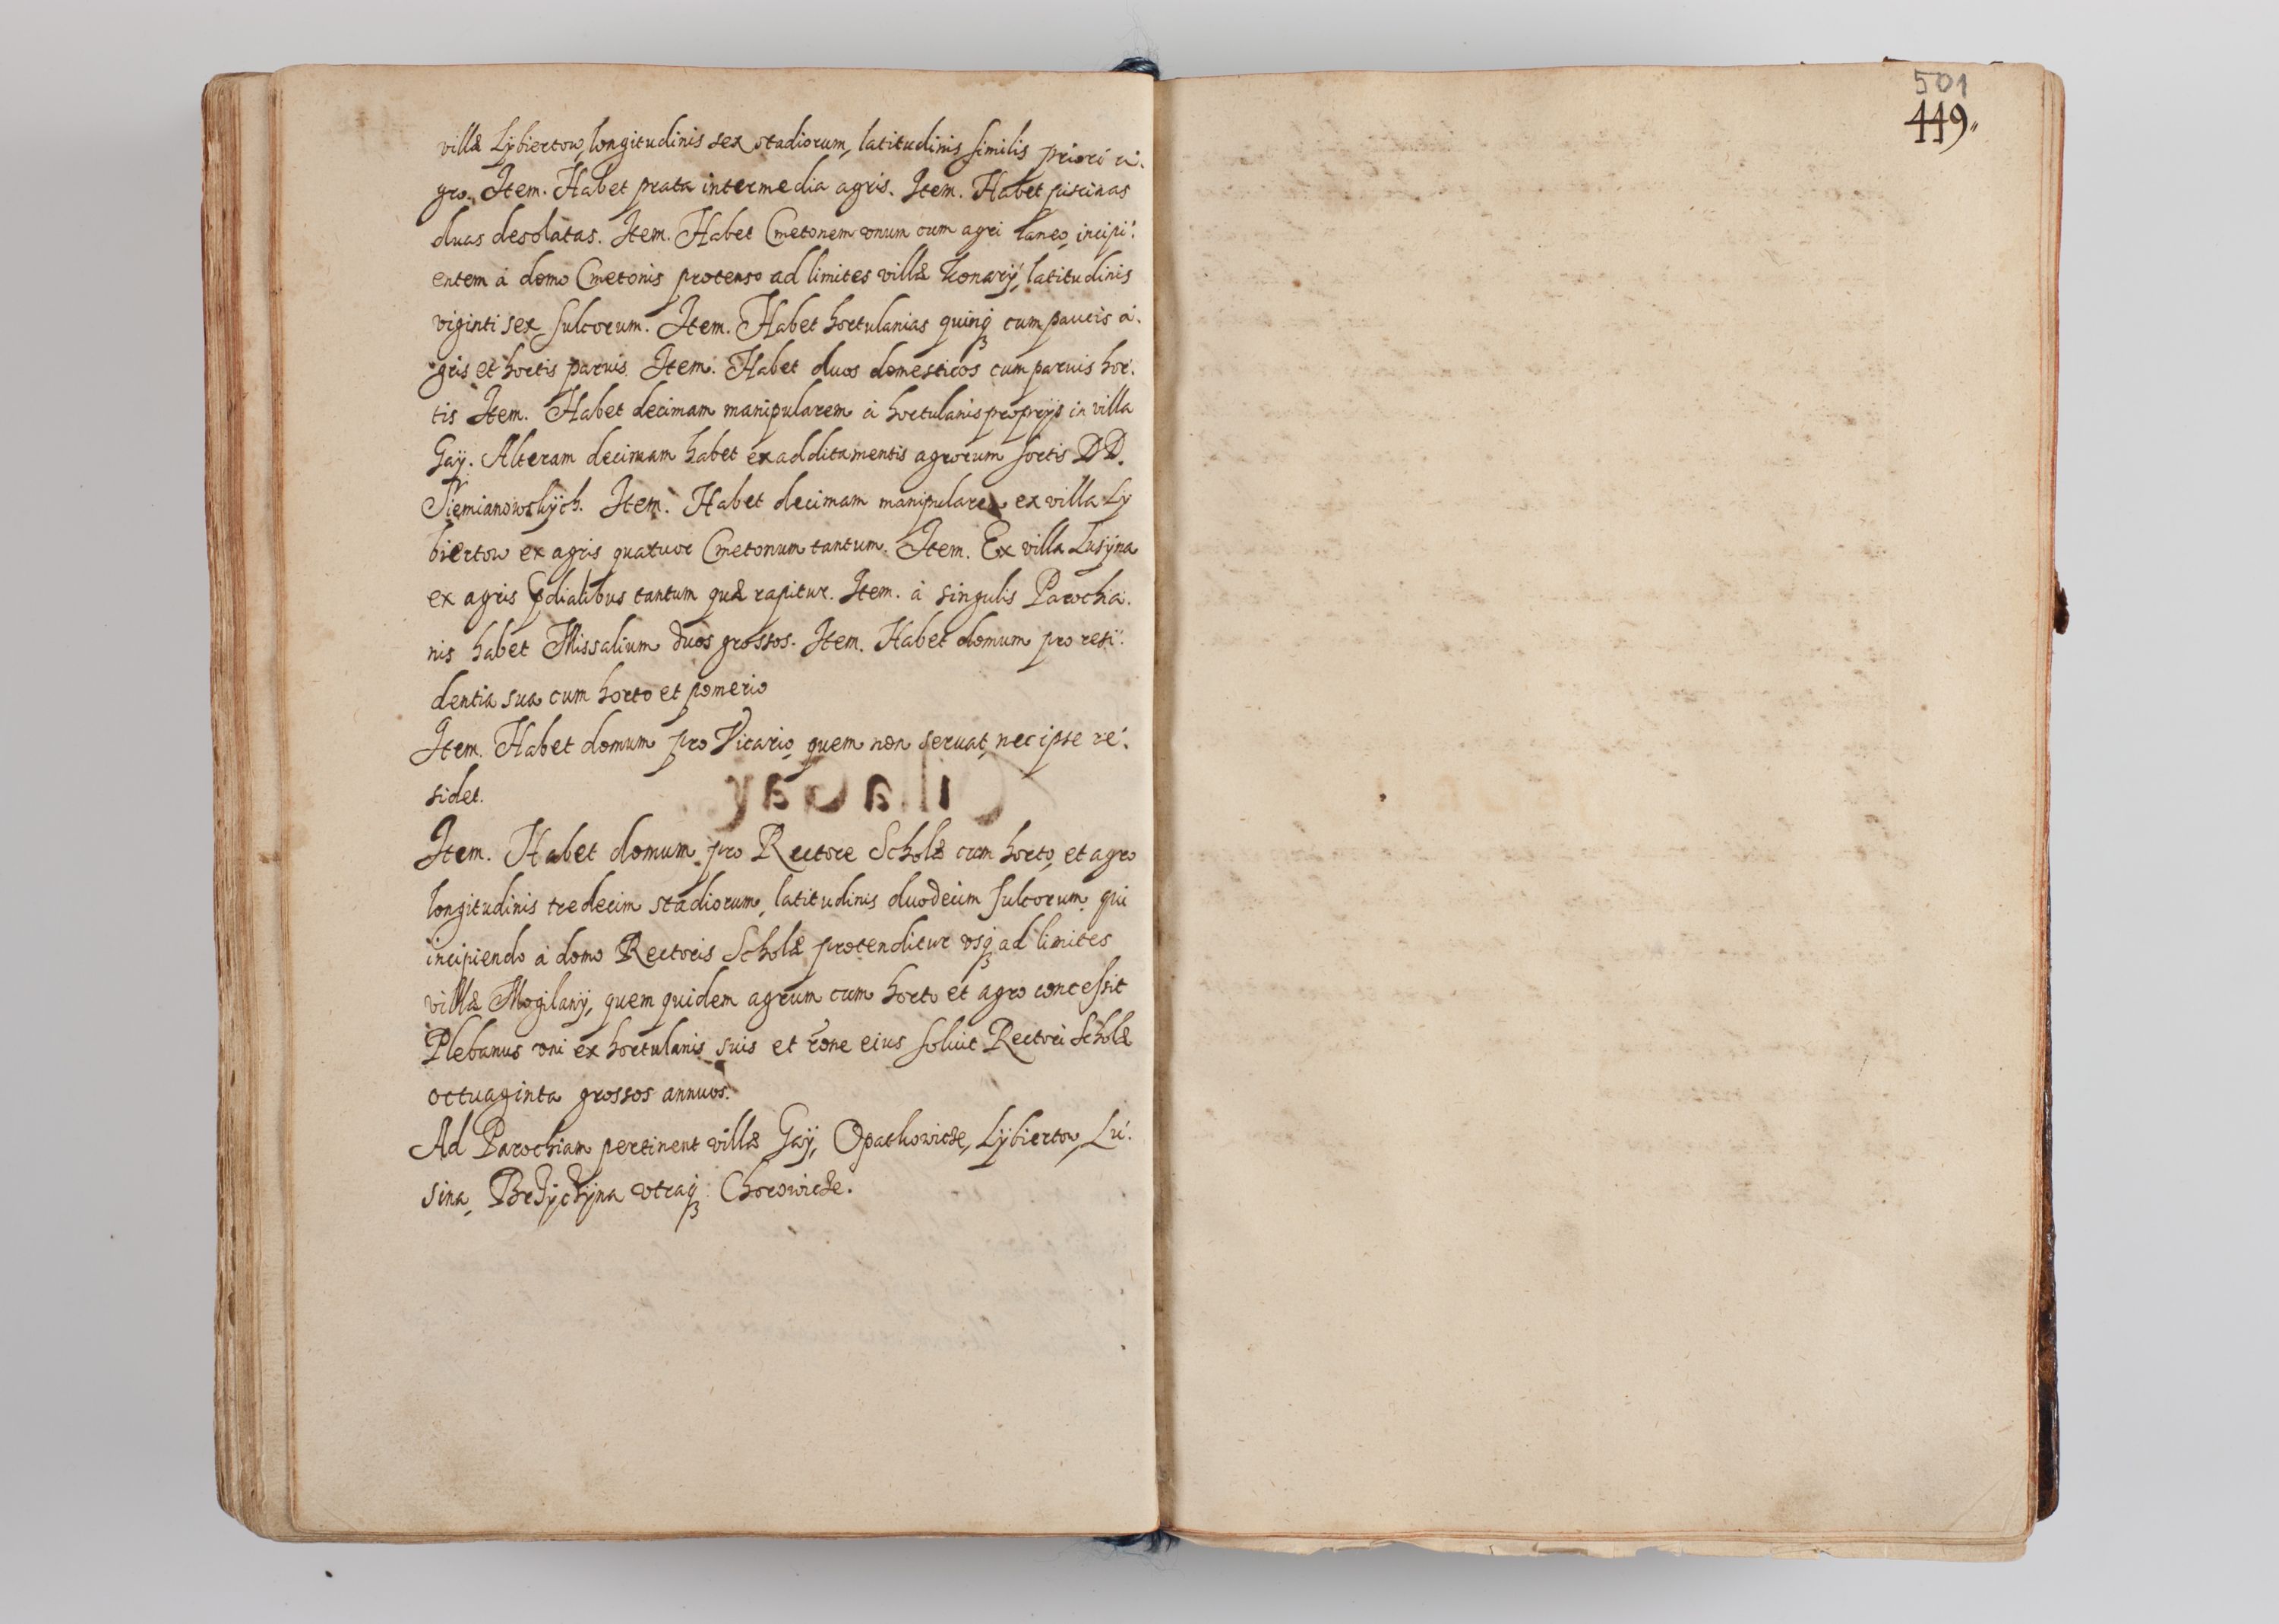 villæ Lÿbiertow, longitudinis sex stadiorum, latitudinis similis priori a-
gro. Item. Habet prata intermedia agris. Item. Habet piscinas
duas desolatas. Item. Habet Cmetonem vnum cum agri laneo, incipi-
entem à domo Cmetonis protenso ad limites villæ Konarÿ, latitudinis
viginti sex sulcorum. Item. Habet hortulanias quinqꝫ cum paucis a-
gris et hortis paruis. Item. Habet duos domesticos cum paruis hor-
tis Item. Habet decimam manipularem à hortulanis proprÿs in villa
Gaÿ. Alteram decimam habet ex additamentis agrorum sortis DD.
Siemianowskÿch. Item. Habet decimam manipularem ex villa Lÿ
biertow ex agris quatuor Cmetonum tantum. Item. Ex villa Lusÿna
ex agris p̱dialibus tantum quæ rapitur. Item. à singulis Parochia-
nis habet Missalium duos grossos. Item. Habet domum pro resi-
dentia sua cum horto et pomerio
Item. Habet domum pro Vicario, quem non seruat, nec ipse re-
sidet.
Item. Habet domum pro Rectore Scholæ cum horto, et agro
longitudinis tredecim stadiorum, latitudinis duodecim sulcorum, qui
incipiendo à domo Rectoris Scholæ protenditur vsqꝫ ad limites
villæ Mogilanÿ, quem quidem agrum cum horto et agro concessit
Plebanus vni ex hortulanis suis et rõne eius soluit Rectori Scholæ
octuaginta grossos annuos.
Ad Parochiam pertinent villæ Gaÿ, Opatkowicze, Lÿbiertow, Lu-
sina, Brzÿczÿna vtraqꝫ Chorowicze.
501
449